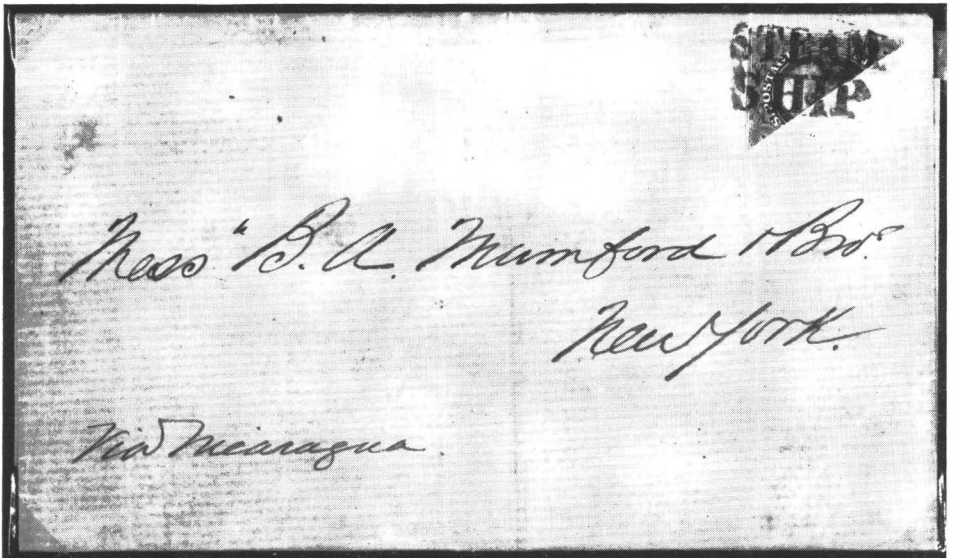 STEAM
SHIP
POSTAGE
Mess" B. A. Mumford & Bro.
New York.
Via Nicaragua